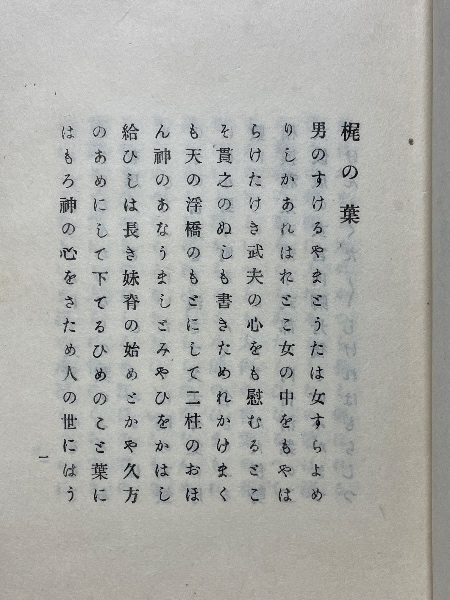 梶の葉
男のすけるやまとうたは女すらよめ
りしかあれはれとこ女の中をもやは
らけたけき武夫の心をも慰むるとこ
そ貫之のぬしも書きためれかけまく
も天の浮橋のもとにして二柱のおほ
ん神のあなうましとみやひをかはし
給ひしは長き妹脊の始めとかや久方
のあめにして下てるひめのこと葉に
はもろ神の心をさため人の世にはう
一